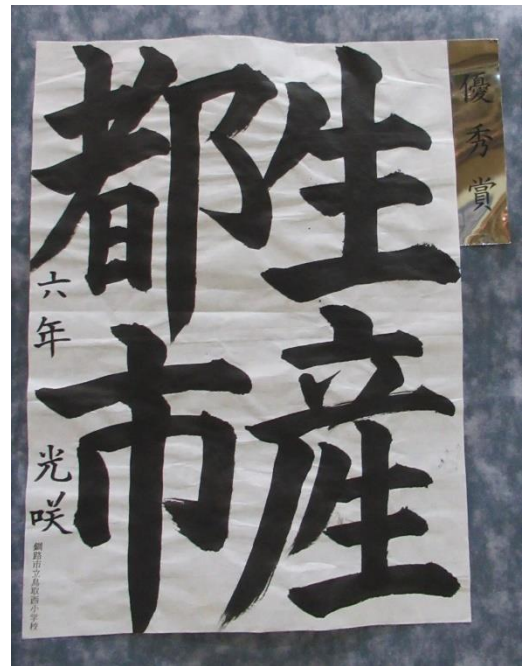 優秀賞
生産
都市
六年 光咲
釧路市立鳥取西小学校